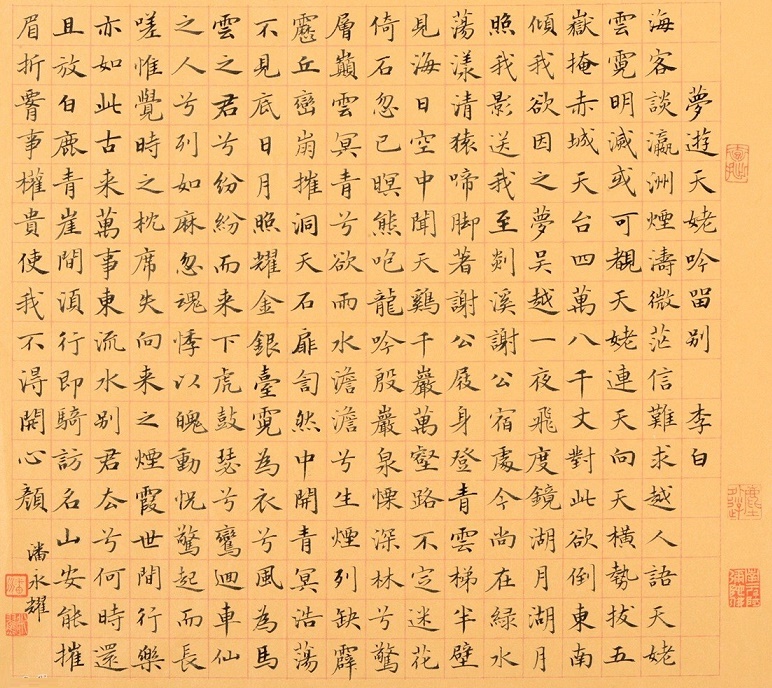 夢遊天姥吟留别 李白
海客談瀛洲煙濤微茫信難求越人語天姥
雲霓明滅或可覩天姥連天向天橫勢拔五
嶽掩赤城天台四萬八千丈對此欲倒東南
傾我欲因之夢吳越一夜飛度鏡湖月湖月
照我影送我至剡溪謝公宿處今尚在綠水
蕩漾清猿啼脚著謝公屐身登青雲梯半壁
見海日空中聞天鷄千巖萬壑路不定迷花
倚石忽已暝熊咆龍吟殷巖泉慄深林兮驚
層巔雲冥青兮欲而水澹澹兮生煙列缺霹
靂丘巒崩摧洞天石扉訇然中開青冥浩蕩
不見底日月照耀金銀臺霓為衣兮風為馬
雲之君兮紛紛而来下虎鼓瑟兮鸞迴車仙
之人兮列如麻忽魂悸以魄動怳驚起而長
嗟惟覺時之枕席失向来之煙霞世間行樂
亦如此古来萬事東流水别君去兮何時還
且放白鹿青崖間須行即騎訪名山安能摧
眉折事權貴使我不得開心顏
潘永耀